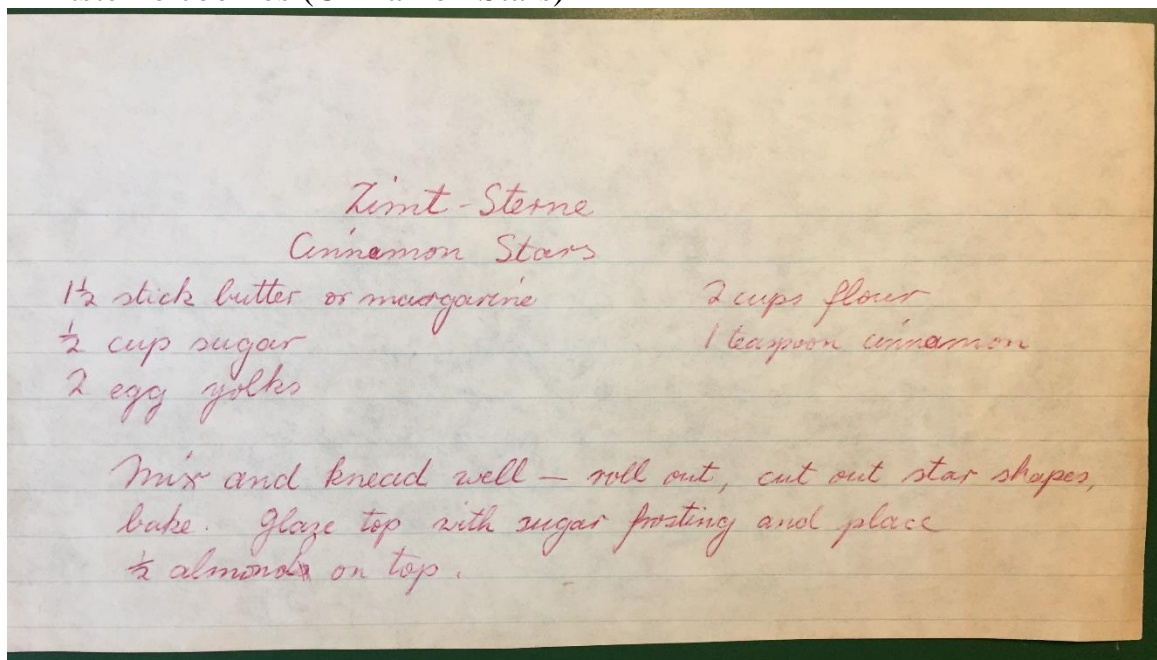 Zimt-Sterne
Cinnamon Stars
1½ stick butter or margarine
½ cup sugar
2 egg yolks
2 cups flour
1 teaspoon cinnamon
Mix and knead well — roll out, cut out star shapes,
bake. Glaze top with sugar frosting and place
½ almond on top.